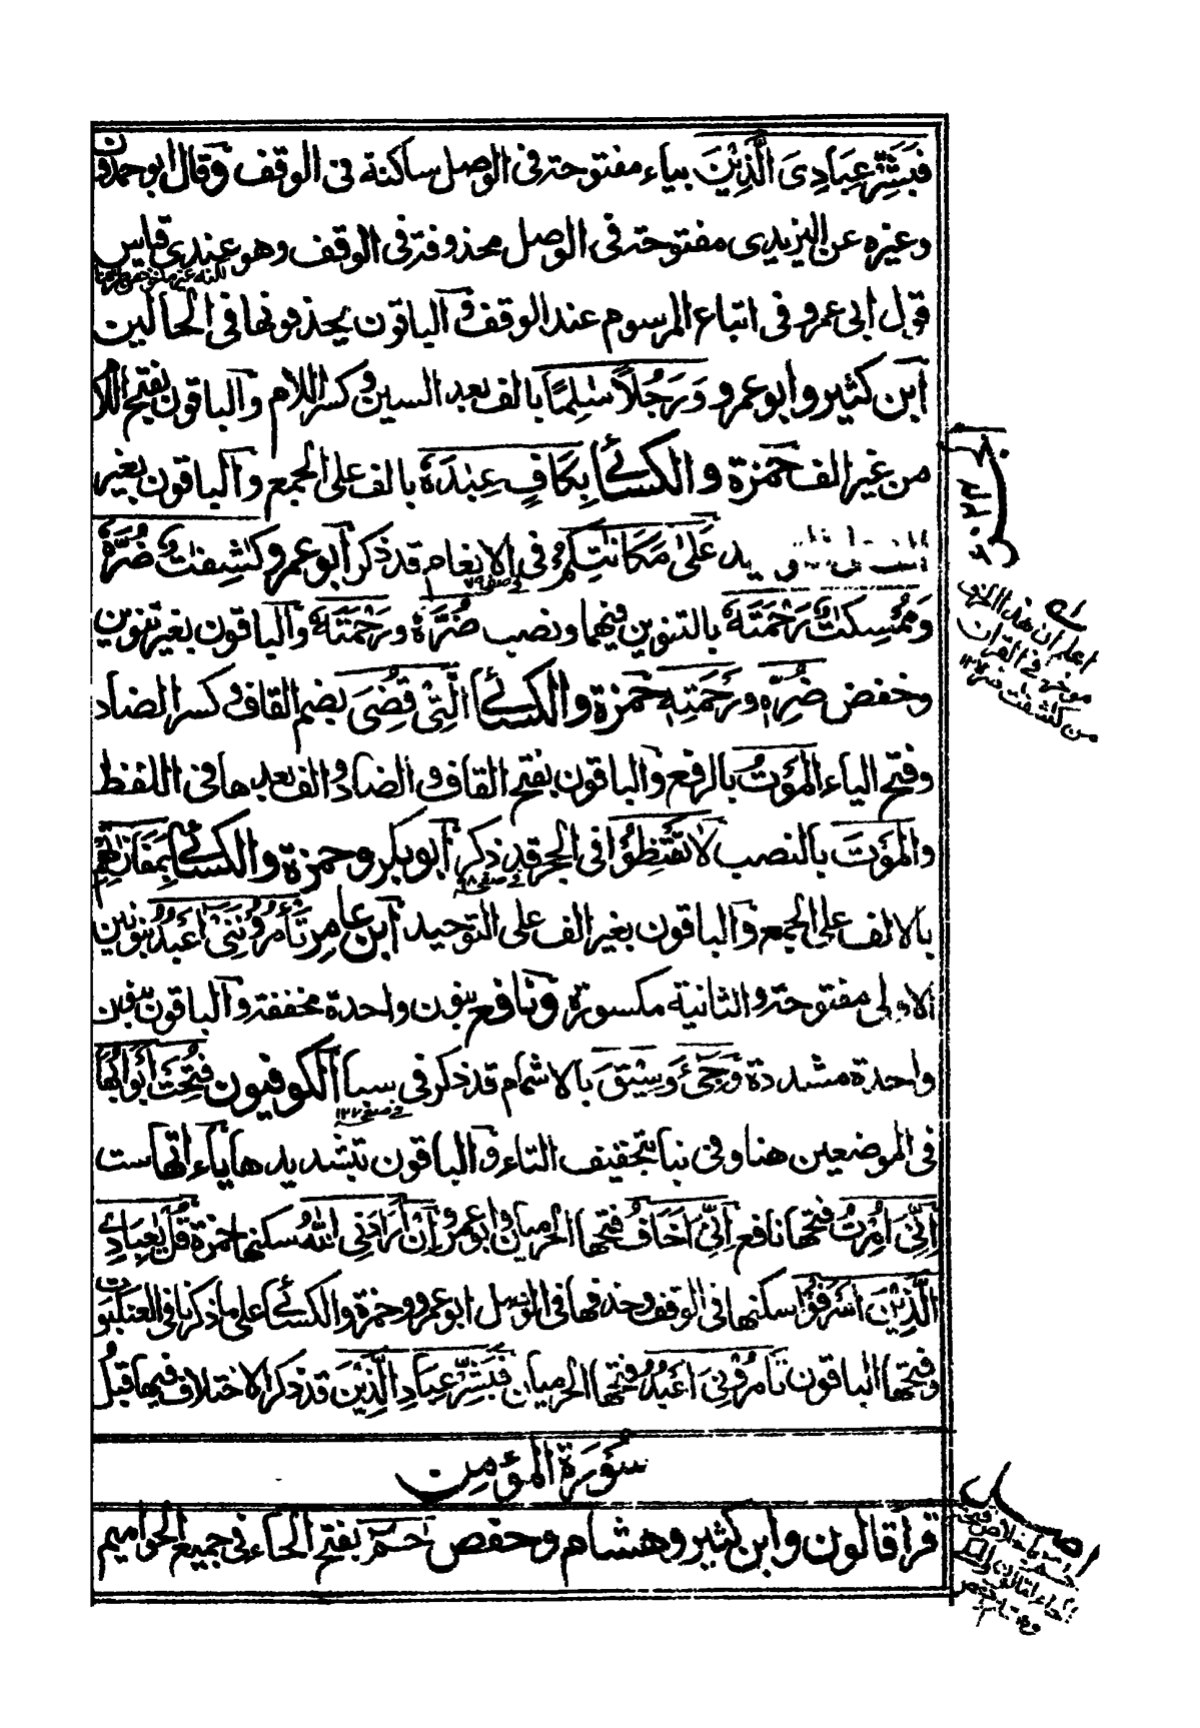 فَبَشِّرْ عِبَادِيَ الَّذِيْنَ بياء مفتوحة فى الوصل ساكنة فى الوقف وقال ابو حمدون
وغيره عن اليزيدى مفتوحة فى الوصل محذوفة فى الوقف وهو عندى قياس
قول ابى عمرو فى اتباع المرسوم عند الوقف والباقون يحذفونها فى الحالين
ابن كثير وابو عمرو وَرَجُلًا سٰلِمًا بالف بعد السين وكسر اللام والباقون بفتح اللام
من غير الف حمزة والكسائى بِكَافٍ عِبٰدَهٗ بالف على الجمع والباقون بغير
على مَكَانٰتِكُمْ فى الانعام قد ذكر ابو عمرو كٰشِفٰتٌ ضُرَّهٗ
فى صفه ٧٩
وَمُمْسِكٰتٌ رَحْمَتَهٗ بالتنوين فيهما ونصب ضُرَّهٗ ورَحْمَتَهٗ والباقون بغير تنوين
وخفض ضُرِّهٖ ورَحْمَتِهٖ حمزة والكسائى الَّتِىْ قُضِىَ بضم القاف وكسر الضاد
وفتح الياء الْمَوْتُ بالرفع والباقون بفتح القاف والضاد والف بعدها فى اللفظ
والْمَوْتَ بالنصب لَا تَقْنَطُوْا فى الحجر قد ذكر ابو بكر وحمزة والكسائى بِمَفَازٰتِهِمْ
بالالف على الجمع والباقون بغير الف على التوحيد ابن عامر تَأْمُرُوْنَنِىْ اَعْبُدُ بنونين
الاولى مفتوحة والثانية مكسورة ونافع بنون واحدة مخففة والباقون بنون
واحدة مشددة وَجِىْءَ وَسِيْقَ بالاشمام قد ذكر فى سبا الكوفيون فُتِحَتْ اَبْوَابُهَا
فى الموضعين هنا وفى نبا بتخفيف التاء والباقون بتشديدها ياءاتها ست
اِنِّىْ اُمِرْتُ فتحها نافع اِنِّىْ اَخَافُ فتحها الحرميان وابو عمرو اِنْ اَرَادَنِىَ اللّٰهُ سكنها حمزة قُلْ يٰعِبَادِىَ
الَّذِيْنَ اَسْرَفُوْا اسكنها فى الوقف وحذفها فى الوصل ابو عمرو وحمزة والكسائى على ما ذكرنا فى العنكبوت
وفتحها الباقون تَأْمُرُوْنِّىْ اَعْبُدُ فتحها الحرميان فَبَشِّرْ عِبَادِ الَّذِيْنَ قد ذكر الاختلاف فيها قبل
سُوْرَةُ الْمُؤْمِنِ
قرا قالون وابن كثير وهشام وحفص حٰمٓ بفتح الحاء فى جميع الحواميم
اعلم ان هذا
فى القران